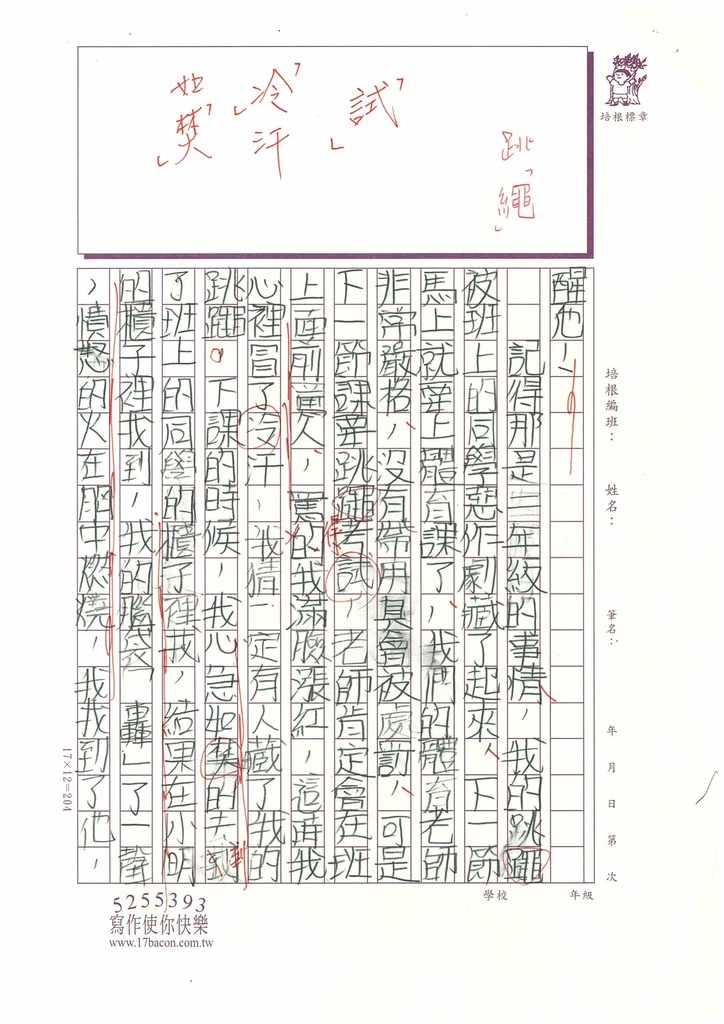 跳「繩」
「試」
「冷」汗
如「焚」
培根標章
醒他！
記得那是三年級的事情，我的跳繩
被班上的同學惡作劇藏了起來，下一節
馬上就輪上體育課了，我們的體育老師
非常嚴格，沒有帶用具會被處罰，可是
下一節課要跳繩考試，老師肯定會在班
上面前罵人，罵的得我滿臉漲紅，這時我
心裡冒了冷汗，我猜一定有人藏了我的
跳繩。下課的時候，我心急如焚的去到
了班上的同學的櫃子裡找，結果在小明
的櫃子裡找到，我的腦袋「轟」了一聲
，憤怒的火在腦中燃燒，我找到了他，
培根編班：
姓名：
筆名：
年 月 日 第 次
17×12=204
學校
年級
5255393
寫作使你快樂
www.17bacon.com.tw